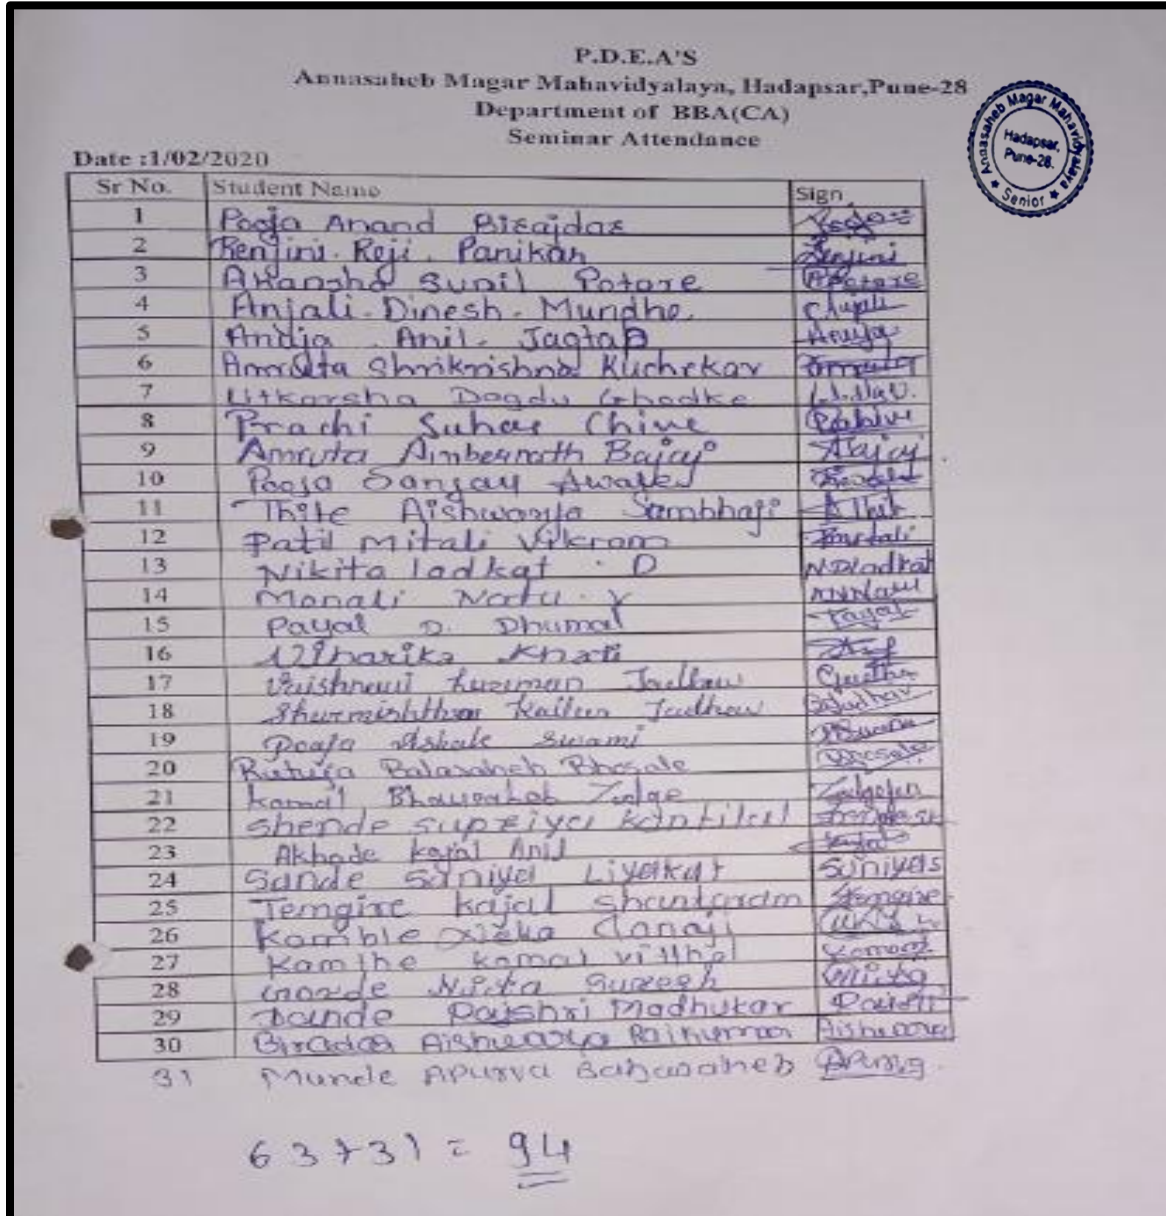 P.D.E.A'S
Annasaheb Magar Mahavidyalaya, Hadapsar,Pune-28
Department of BBA(CA)
Seminar Attendance
Annasaheb Magar Mahavidyalaya
Hadapsar,
Pune-28.
★ Senior ★
Date :1/02/2020
Sr No. Student Name Sign
1 Pooja Anand Birajdar
2 Renjini Reji Panikar Renjini
3 Akansha Sunil Potare APotare
4 Anjali Dinesh Mundhe Anjali
5 Anuja Anil Jagtap Anuja
6 Amruta Shrikrishna Kuchekar
7 Utkarsha Dagdu Ghodke
8 Prachi Suhas Chive
9 Amruta Ambernath Bajaj ABajaj
10 Pooja Sanjay Awale
11 Thite Aishwarya Sambhaji AThite
12 Patil Mitali Vikram
13 Nikita ladkat . D NDladkat
14 Monali Natu . Y
15 Payal D. Dhumal Payal
16 Niharika Khati
17 Vaishnavi Jadhav
18 Sharmishtha Kailas Jadhav
19 Pooja Swami
20 Rutuja Balasaheb Bhosale Bhosale
21 Komal Bhausaheb Zolge
22 Shende supriya kantilal
23 Akhade kajal Anil
24 Sande Saniya Liyakat Saniyas
25 Temgire kajal shantaram Temgire
26 Kamble Neha danaji
27 Kamthe komal vitthal
28 Nikta Suresh Nikta
29 Dande Rajshri Madhukar
30 Biradar Aishwarya Rajkumar Aishwarya
31 Munde Apurva Babasaheb
63+31 = 94